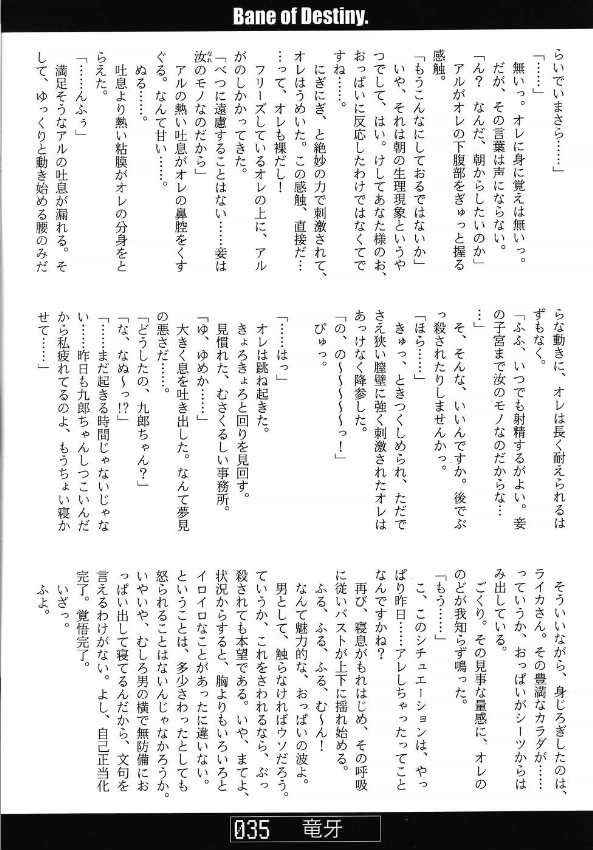 Bane of Destiny.
らいでいまさら……」
「……」
無いっ。オレに身に覚えは無いっ。
だが、その言葉は声にならない。
「ん? なんだ、朝からしたいのか」
アルがオレの下腹部をぎゅっと握る
感触。
「もうこんなにしておるではないか」
いや、それは朝の生理現象というや
つでして、はい。けしてあなた様のお、
おっぱいに反応したわけではなくてで
すね……。
にぎにぎ、と絶妙の力で刺激されて、
オレはうめいた。この感触、直接だ…
…って、オレも裸だし!
フリーズしているオレの上に、アル
がのしかかってきた。
「べつに遠慮することはない……妾は
汝のモノなのだから」
アルの熱い吐息がオレの鼻腔をくす
ぐる。なんて甘い……。
ぬる……。
吐息より熱い粘膜がオレの分身をと
らえた。
「……んふぅ」
満足そうなアルの吐息が漏れる。そ
して、ゆっくりと動き始める腰のみだ
らな動きに、オレは長く耐えられるは
ずもなく。
「ふふ、いつでも射精するがよい。妾
の子宮まで汝のモノなのだからな…
…」
そ、そんな、いいんですか。後でぶ
っ殺されたりしませんかっ。
「ほら……」
きゅっ、ときつくしめられ、ただで
さえ狭い膣壁に強く刺激されたオレは
あっけなく降参した。
「の、の〜〜〜〜〜っ!」
ぴゅっ。
「……はっ」
オレは跳ね起きた。
きょろきょろと回りを見回す。
見慣れた、むさくるしい事務所。
「ゆ、ゆめか……」
大きく息を吐き出した。なんて夢見
の悪さだ……。
「どうしたの、九郎ちゃん?」
「な、なぬ〜っ!?」
「……まだ起きる時間じゃないじゃな
い……昨日も九郎ちゃんしつこいんだ
から私疲れてるのよ、もうちょい寝か
せて……」
そういいながら、身じろぎしたのは、
ライカさん。その豊満なカラダが……
っていうか、おっぱいがシーツからは
み出している。
ごくり。その見事な量感に、オレの
のどが我知らず鳴った。
「もう……」
こ、このシチュエーションは、やっ
ぱり昨日……アレしちゃったってこと
なんですかね?
再び、寝息がもれはじめ、その呼吸
に従いバストが上下に揺れ始める。
ふる、ふる、ふる、む〜ん!
なんて魅力的な、おっぱいの波よ。
男として、触らなければウソだろう。
ていうか、これをさわれるなら、ぶっ
殺されても本望である。いや、まてよ、
状況からすると、胸よりもいろいろと
イロイロなことがあったに違いない。
ということは、多少さわったとしても
怒られることはないんじゃなかろうか。
いやいや、むしろ男の横で無防備にお
っぱい出して寝てるんだから、文句を
言えるわけがない。よし、自己正当化
完了。覚悟完了。
いざっ。
ふよ。
035 竜牙